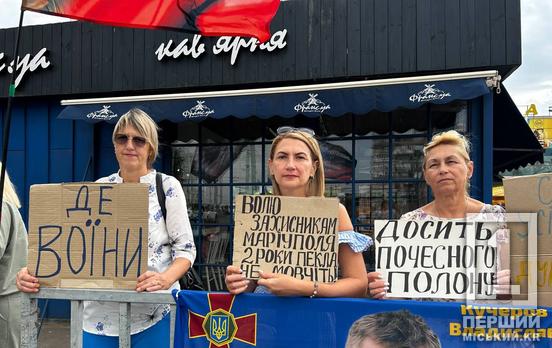 кав'ярня
франсуа
франсуа
франсуа
франсуа
ДЕ
ВОЇНИ
ВОЛЮ
ЗАХИСНИКАМ
МАРІУПОЛЯ
2 РОКИ ПЕКЛА
НЕ МОВЧІТЬ!
ДОСИТЬ
ПОЧЕСНОГО
ПОЛОНУ
Кучеров
Владислав
ПЕРШИЙ
МІСЬКИЙ.KR